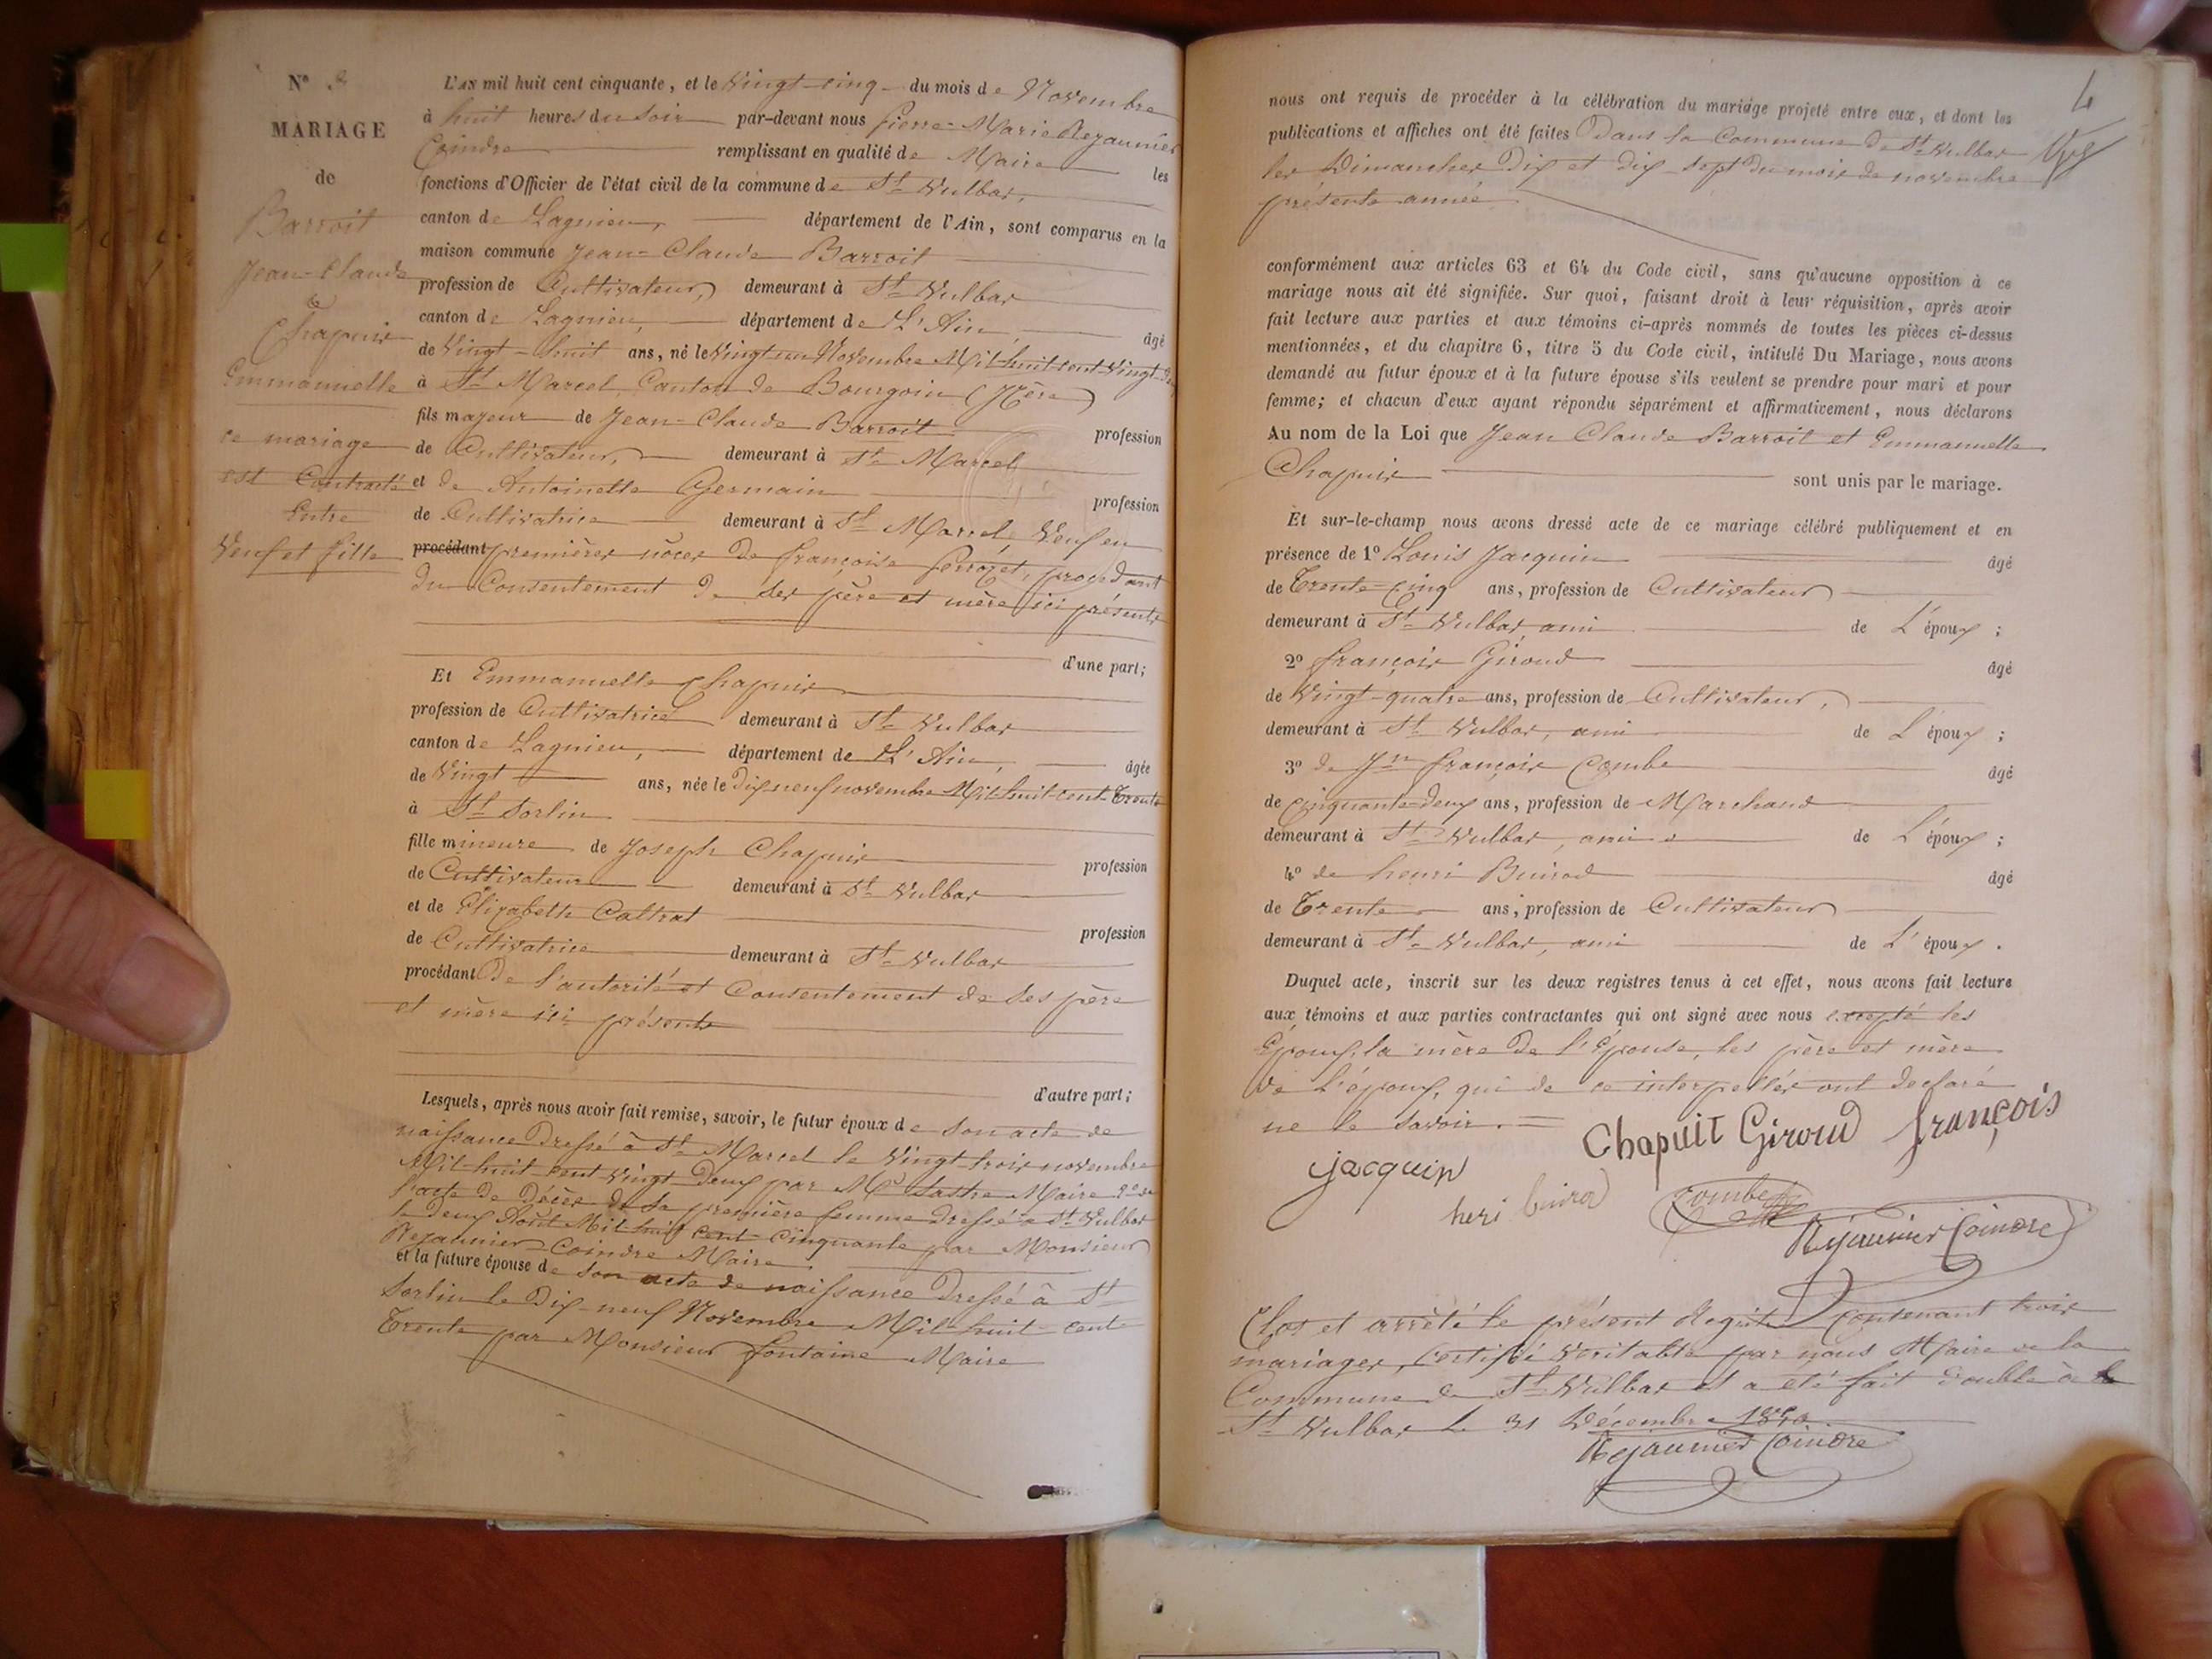 N° 3
MARIAGE
de
Barroit
Jean-Claude
&
Chapuis
Emmanuelle
ce mariage
est Contracté
Entre
Veuf et fille
L'AN mil huit cent cinquante, et le Vingt-cinq du mois de Novembre
à huit heures du soir par-devant nous pierre-Marie Rejaunier
Coindre remplissant en qualité de Maire les
fonctions d'Officier de l'état civil de la commune de St Vulbas,
canton de Lagnieu, département de l'Ain, sont comparus en la
maison commune Jean-Claude Barroit
profession de Cultivateur, demeurant à St Vulbas
canton de Lagnieu, département de L'Ain âgé
de Vingt-huit ans, né le Vingt un Novembre Mil-huit-cent-Vingt-
à St Marcel Canton de Bourgoin (Isère)
fils majeur de Jean-Claude Barroit profession
de Cultivateur, demeurant à St Marcel
et de Antoinette Germain profession
de Cultivatrice demeurant à St Marcel, Veuf en
procédant premières nôces de françoise perrozet, procédant
du Consentement de ses père et mère ici présents
d'une part;
Et Emmanuelle Chapuis
profession de Cultivatrice demeurant à St Vulbas
canton de Lagnieu, département de L'Ain, âgée
de Vingt ans, née le Dix neuf novembre Mil-huit-cent-Trente
à St Sorlin
fille mineure de Joseph Chapuis profession
de Cultivateur demeurant à St Vulbas
et de Elizabeth Caltrat profession
de Cultivatrice demeurant à St Vulbas
procédant De l'autorité et Consentement de ses père
et mère ici présents
d'autre part;
Lesquels, après nous avoir fait remise, savoir, le futur époux de son acte de
naissance Dressé à St Marcel le Vingt-trois novembre
Mil-huit-cent-vingt Deux par Mr Sastre Maire 2° de
l'acte de Décès de Sa première femme Dressé à St Vulbas
le deux Août Mil huit cent-Cinquante par Monsieur
Rejaunier-Coindre Maire
et la future épouse de son acte de naissance Dressé à St
Sorlin le Dix-neuf Novembre Mil-huit-cent
Trente par Monsieur fontaine Maire
4
nous ont requis de procéder à la célébration du mariage projeté entre eux, et dont les
publications et affiches ont été faites Dans la Commune de St Vulbas
les Dimanches Dix et dix-sept Du mois de novembre
présente année
conformément aux articles 63 et 64 du Code civil, sans qu'aucune opposition à ce
mariage nous ait été signifiée. Sur quoi, faisant droit à leur réquisition, après avoir
fait lecture aux parties et aux témoins ci-après nommés de toutes les pièces ci-dessus
mentionnées, et du chapitre 6, titre 5 du Code civil, intitulé Du Mariage, nous avons
demandé au futur époux et à la future épouse s'ils veulent se prendre pour mari et pour
femme; et chacun d'eux ayant répondu séparément et affirmativement, nous déclarons
Au nom de la Loi que Jean Claude Barroit et Emmanuelle
Chapuis sont unis par le mariage.
Et sur-le-champ nous avons dressé acte de ce mariage célébré publiquement et en
présence de 1° Louis Jacquin âgé
de Trente-cinq ans, profession de Cultivateur
demeurant à St Vulbas, ami de L'époux ;
2° françois Giroud âgé
de Vingt-quatre ans, profession de Cultivateur,
demeurant à St Vulbas, ami de L'époux ;
3° de Jn françois Combe âgé
de Cinquante-deux ans, profession de Marchand
demeurant à St Vulbas, ami de L'époux ;
4° de henri Buirod âgé
de Trente ans, profession de Cultivateur
demeurant à St Vulbas, ami de L'époux.
Duquel acte, inscrit sur les deux registres tenus à cet effet, nous avons fait lecture
aux témoins et aux parties contractantes qui ont signé avec nous excepté les
Epoux, la mère De l'Epouse, les père et mère
De L'époux, qui de ce interpellés ont déclaré
ne le savoir. =
Chapuit Giroud françois
jacquin
heri buirod Combe
Réjaunier Coindre
Clos et arrêté le présent Registre Contenant trois
mariages, Certifié Véritable par nous Maire de la
Commune de St Vulbas et a été fait double à
St Vulbas le 31 Décembre 1850
Rejaunier Coindre